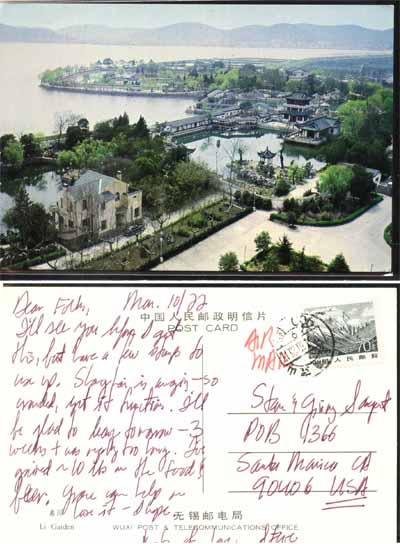 Dear Folks, Mon. 10/22
中国人民邮政明信片
POST CARD
I'll see you before I get
this, but have a few stamps to
use up. Shanghai is amazing – so
crowded, yet it functions. I'll
be glad to leave tomorrow – 3
weeks was really too long. I've
gained ~10 lbs on the food &
beer.
can help me
lose it – I hope
AIR
MAIL
中国人民邮政
Stan & Ginny
POB 1366
Santa Monica CA
90406 USA
蠡园
Li Garden
无锡邮电局
WUXI POST & TELECOMMUNICATIONS OFFICE
Steve